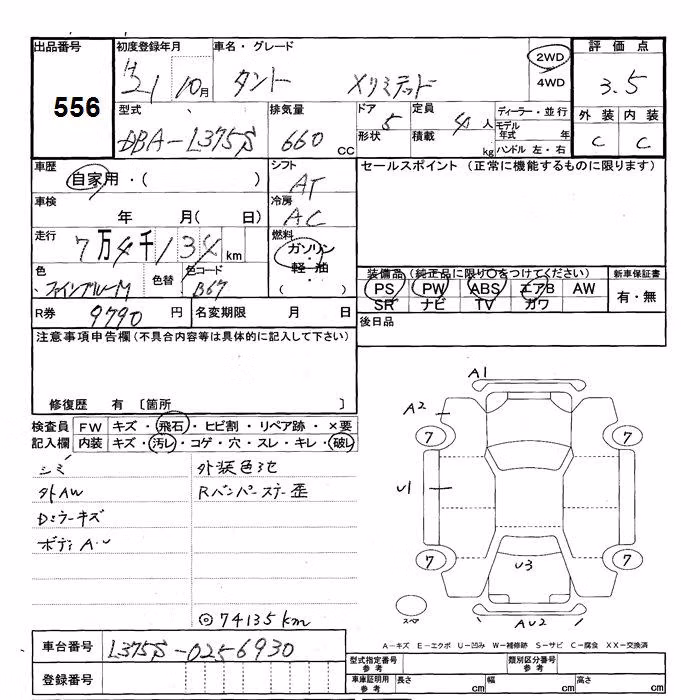 出品番号 初度登録年月 車名・グレード 評価点
556 H21 10月 タント Xリミテッド 2WD 4WD 3.5
型式 排気量 ドア 5 定員 4 人 ディーラー・並行 外装 内装
DBA-L375S 660 CC 形状 積載 kg モデル年式 年 ハンドル 左・右 C C
車歴 自家用・( ) シフト AT セールスポイント (正常に機能するものに限ります)
車検 年 月( 日) 冷房 AC
走行 7万4千134 km 燃料 ガソリン・軽油 ( )
色 ファインブルーM 色替 色コード B67
装備品 (純正品に限り○をつけてください) 新車保証書
PS PW ABS エアB AW 有・無
SR ナビ TV カワ
R券 9790 円 名変期限 月 日 後日品
注意事項申告欄 (不具合内容等は具体的に記入して下さい)
修復歴 有 〔箇所 〕
検査員 FW キズ・飛石・ヒビ割・リペア跡・×要
記入欄 内装 キズ・汚レ・コゲ・穴・スレ・キレ・破レ
シミ 外装色3セ
外AW Rバンパーステー歪
Dミラーキズ
ボディA・U
◎74135km
A1
A2
7 7
U1
7 7
U3
スペア
AU2
A-キズ E-エクボ U-凹み W-補修跡 S-サビ C-腐食 XX-交換済
車台番号 L375S-0256930
登録番号
型式指定番号 参考 類別区分番号 参考
車庫証明用 参考 長さ cm 幅 cm 高さ cm